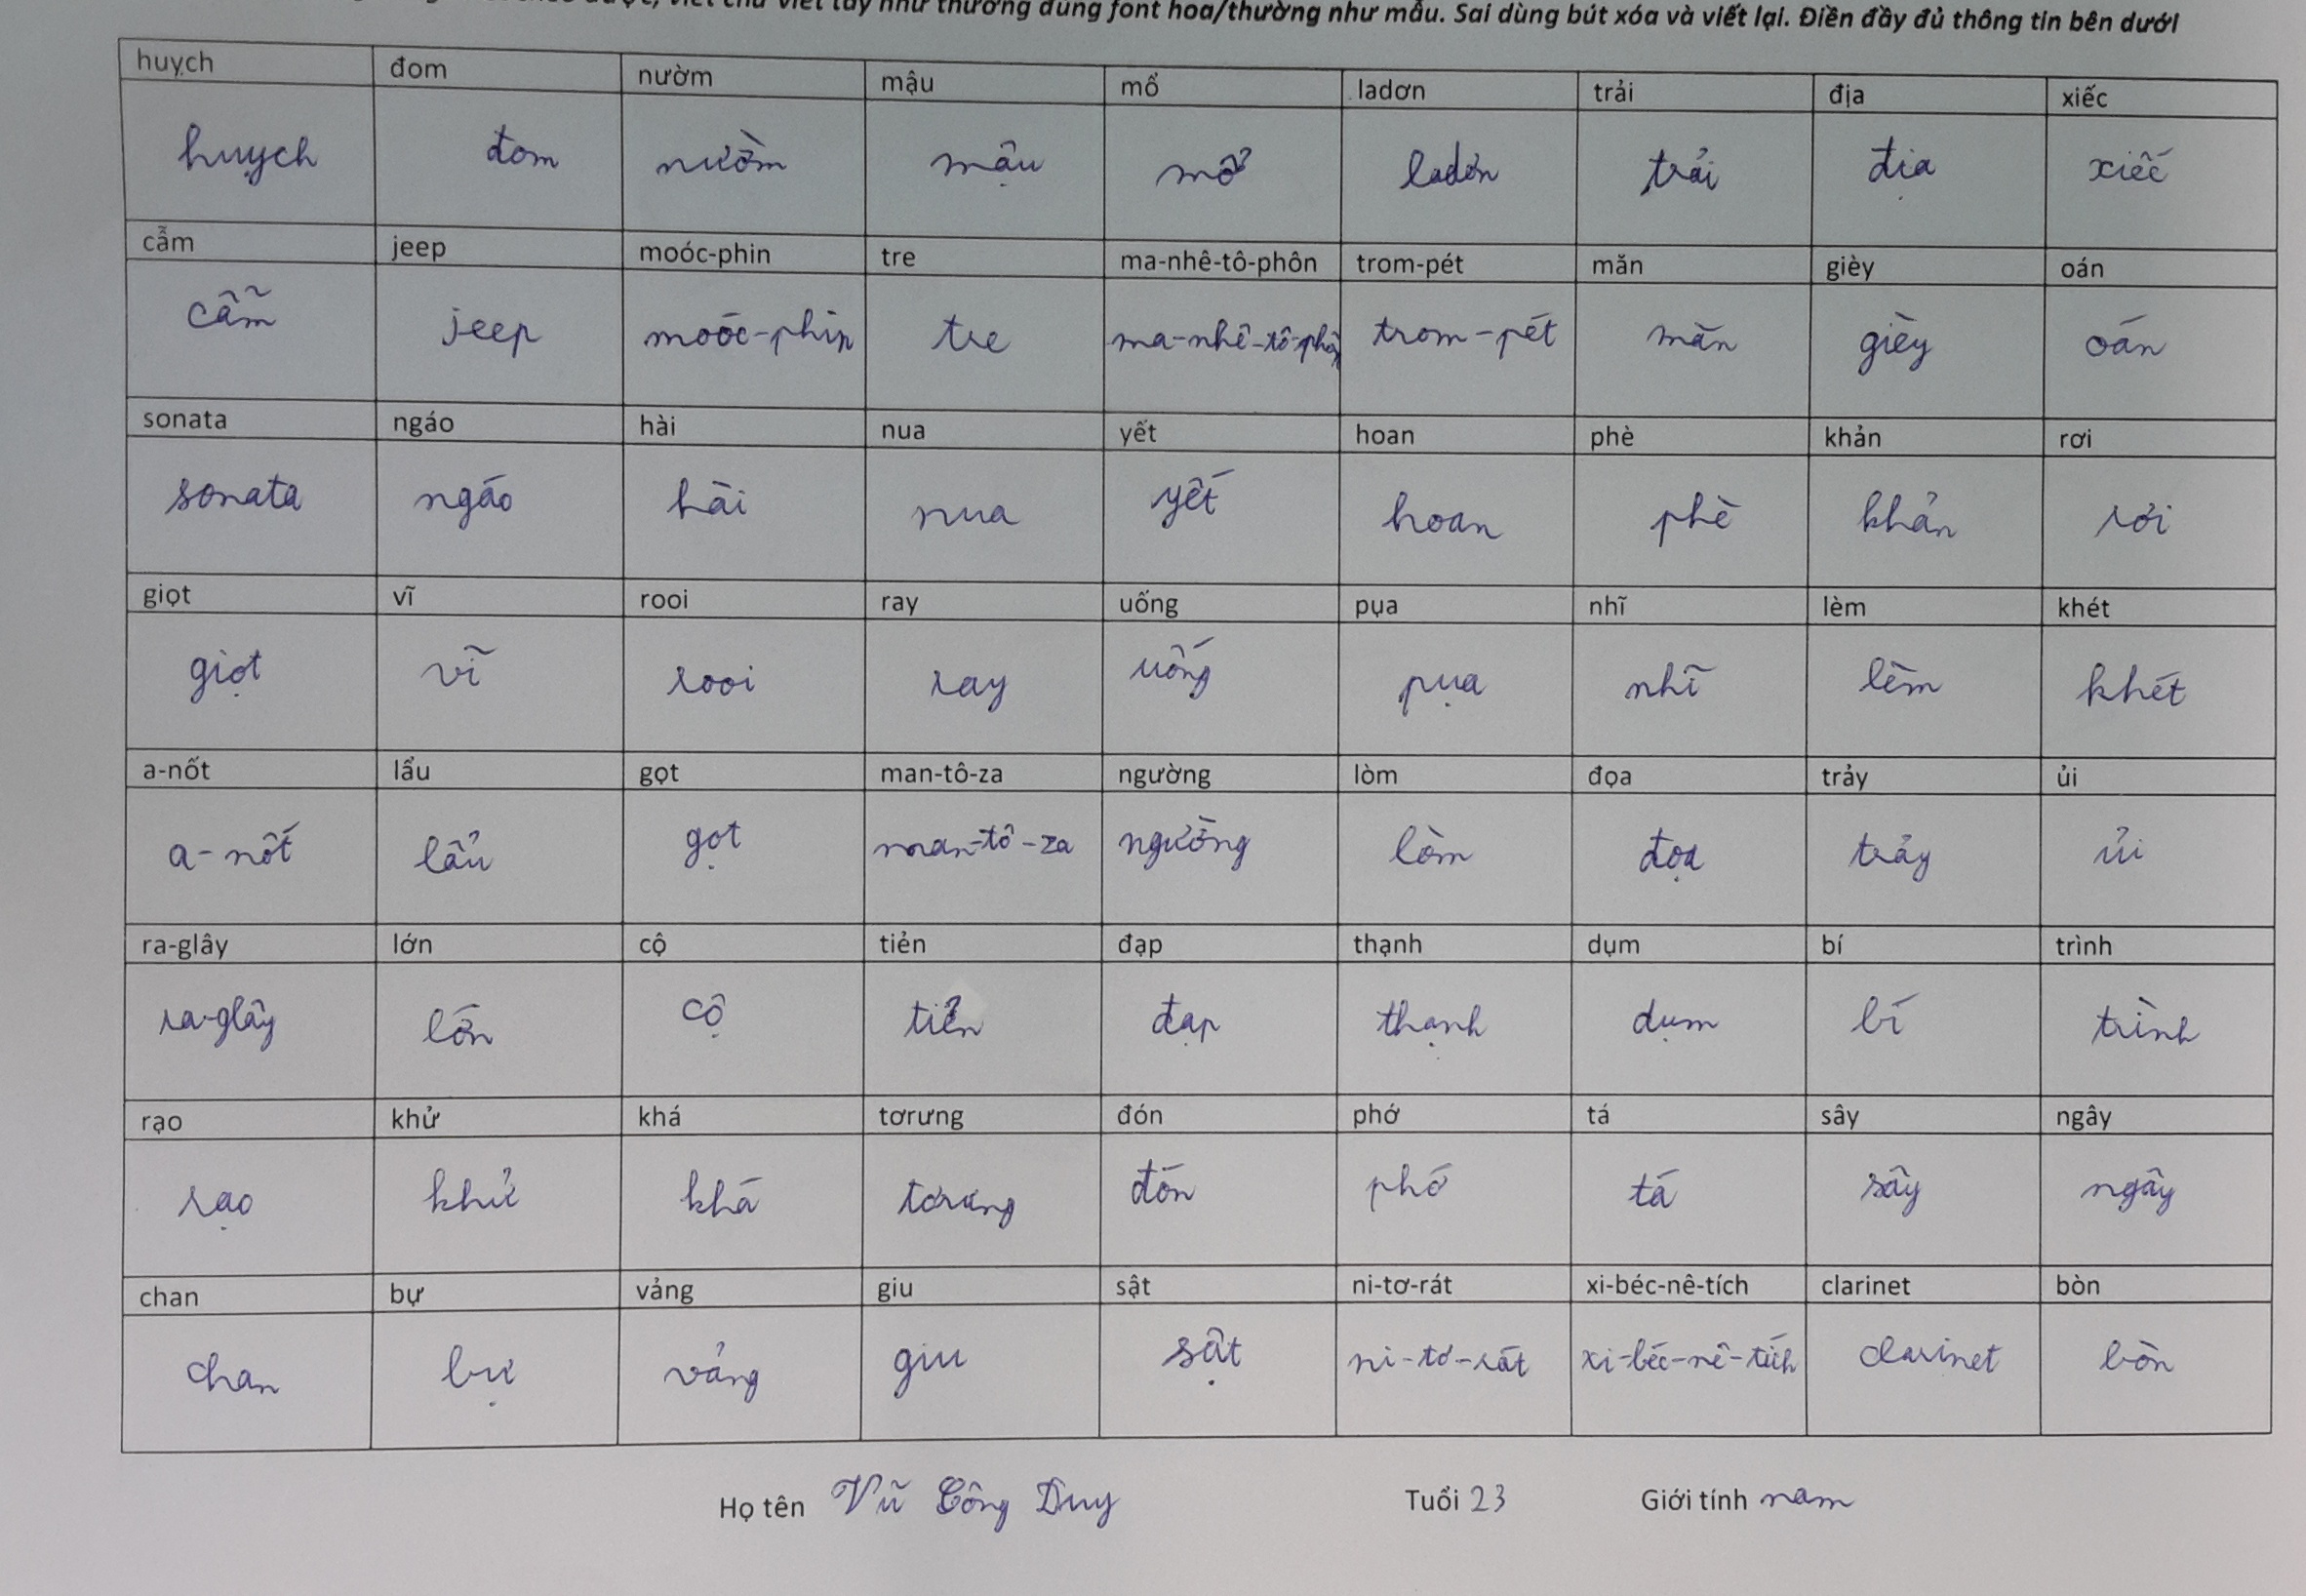 viết chữ viết tay như thường dùng font hoa/thường như mẫu. Sai dùng bút xóa và viết lại. Điền đầy đủ thông tin bên dưới
huỵch đom nườm mậu mổ ladơn trải địa xiếc
huỵch đom nườm mậu mổ ladơn trải địa xiếc
cẫm jeep moóc-phin tre ma-nhê-tô-phôn trom-pét măn gièy oán
cẫm jeep moóc-phin tre ma-nhê-tô-phôn trom-pét măn gièy oán
sonata ngáo hài nua yết hoan phè khản rơi
sonata ngáo hài nua yết hoan phè khản rơi
giọt vĩ rooi ray uống pụa nhĩ lèm khét
giọt vĩ rooi ray uống pụa nhĩ lèm khét
a-nốt lẩu gọt man-tô-za ngường lòm đọa trảy ủi
a-nốt lẩu gọt man-tô-za ngường lòm đọa trảy ủi
ra-glây lớn cộ tiẻn đạp thạnh dụm bí trình
ra-glây lớn cộ tiẻn đạp thạnh dụm bí trình
rạo khử khá tơrưng đón phớ tá sây ngây
rạo khử khá tơrưng đón phớ tá sây ngây
chan bự vảng giu sật ni-tơ-rát xi-béc-nê-tích clarinet bòn
chan bự vảng giu sật ni-tơ-rát xi-béc-nê-tích clarinet bòn
Họ tên Vũ Công Duy Tuổi 23 Giới tính nam